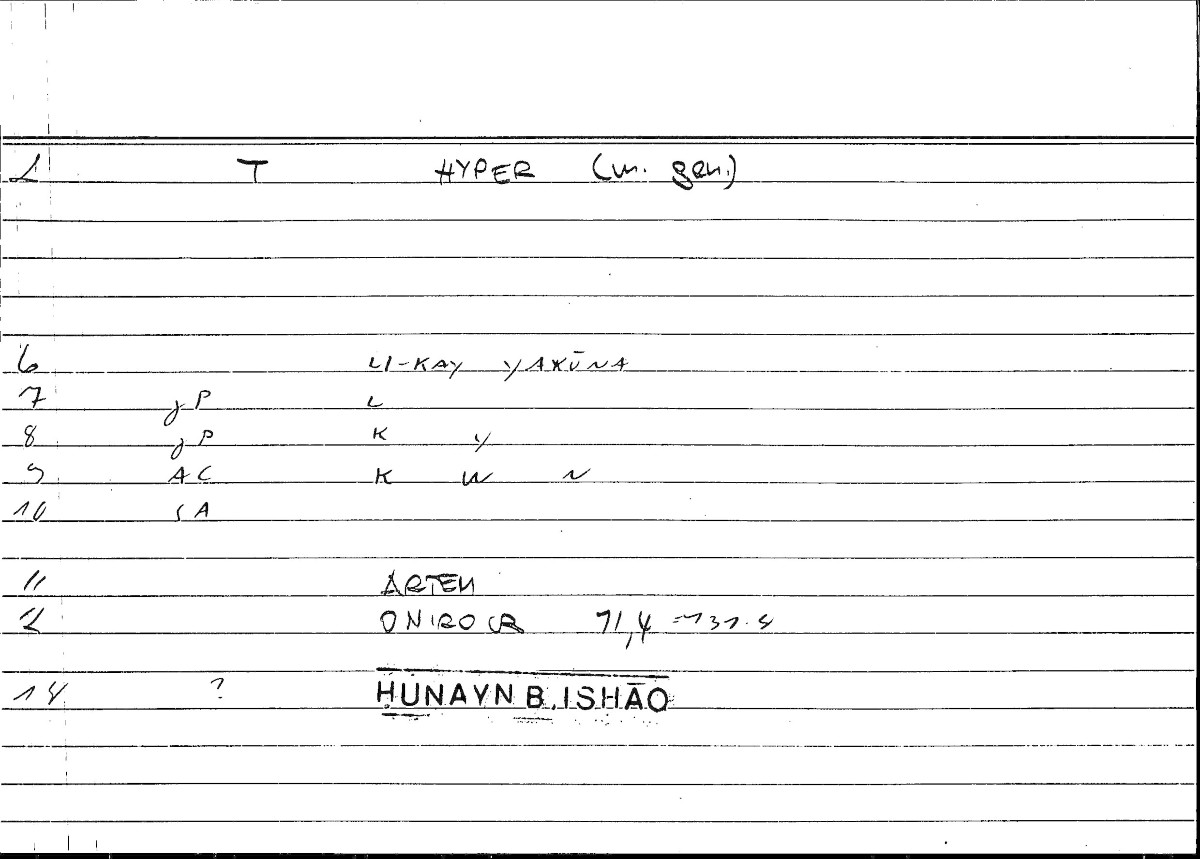 1 T HYPER (m. gen.)
6 LI-KAY YAKŪNA
7 gP L
8 gP K Y
9 AC K W N
10 SA
11 ARTEM
2 ONIROCR 71,4
14 ? ḤUNAYN B. ISḤĀQ